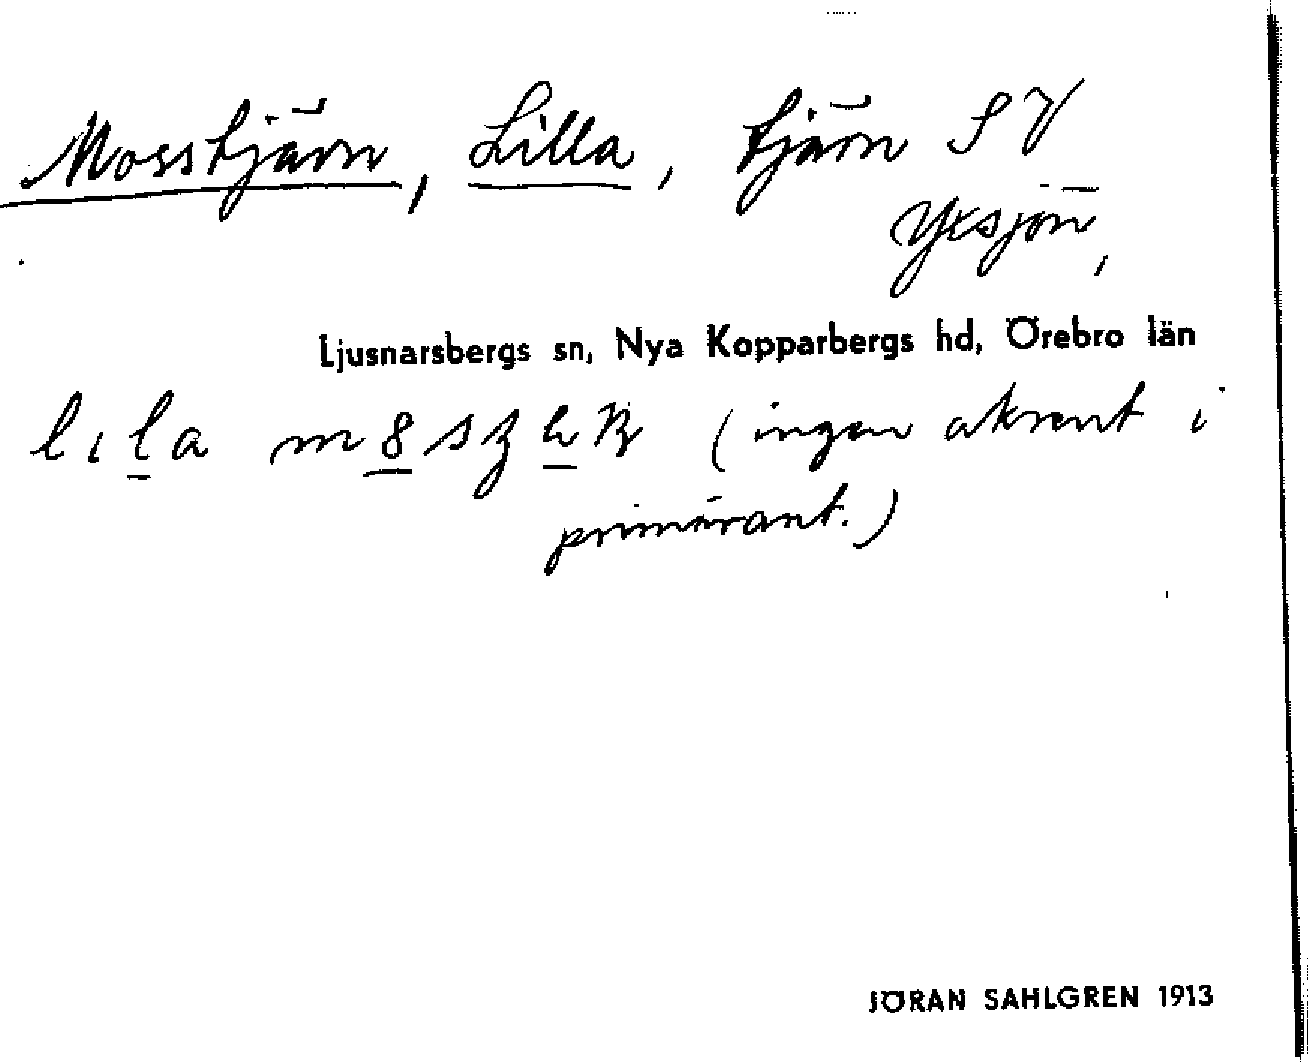 Mosstjärn, Lilla, tjärn SV
Yxsjön,
Ljusnarsbergs sn, Nya Kopparbergs hd, Örebro län
lıla (ingen akcent i
primärant.)
JÖRAN SAHLGREN 1913